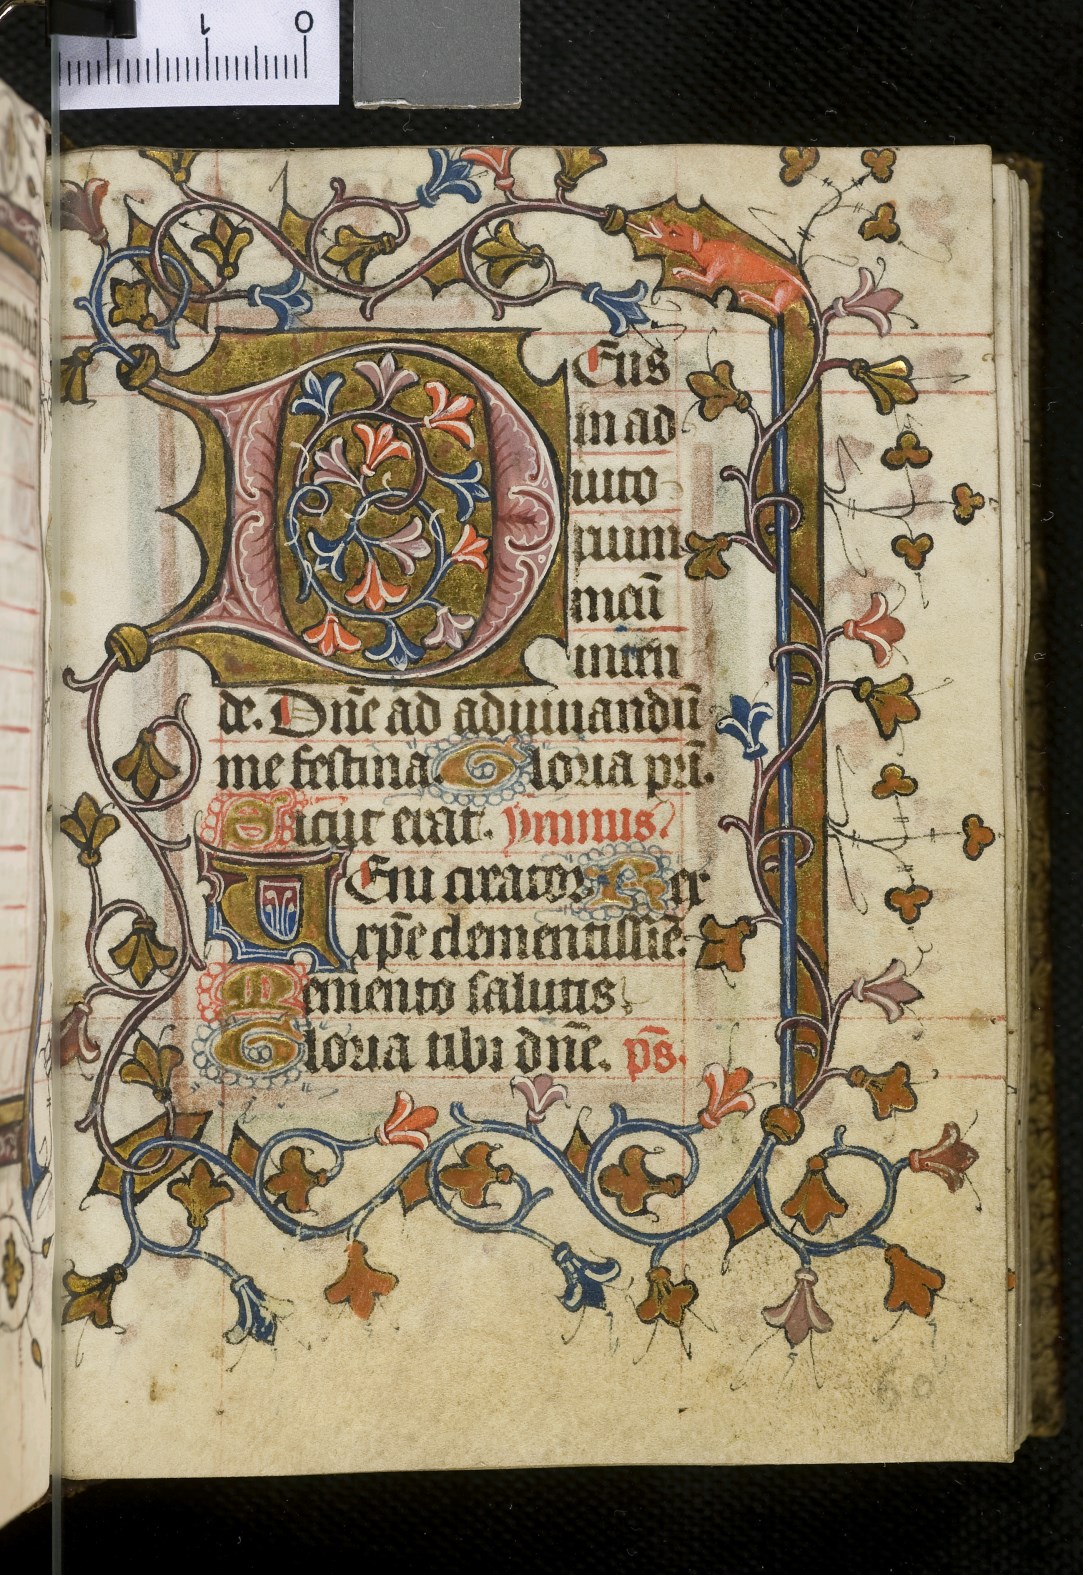 0 1
DEus
in ad
iuto
rium
meū
inten
de. Dn̄e ad adiuuandū
me festina. Gloria pr̄i.
Sicut erat. ymnus.
UEni creator Rex
xp̄e clementissīe.
Memento salutis
Gloria tibi dn̄e. ps̄.
60